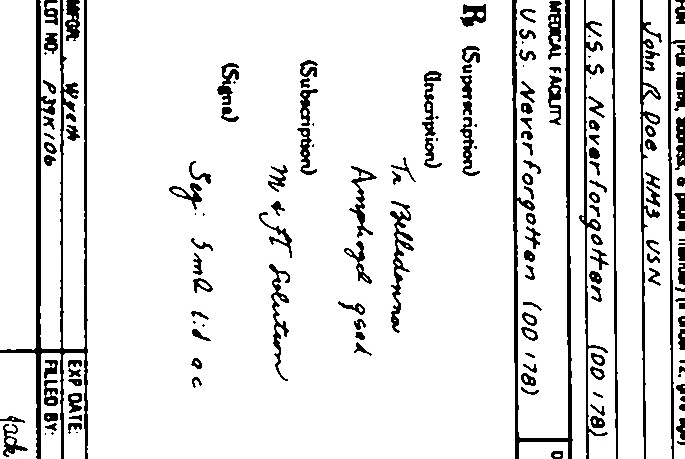 FOR (Full name, address, & phone number) (If under 12, give age)
John R. Doe, HM3, USN
U.S.S. Neverforgotten (DD 178)
MEDICAL FACILITY
U.S.S. Neverforgotten (DD 178)
D
℞ (Superscription)
(Inscription)
Tr Belladonna
Amphogel qsad
(Subscription)
M & ft Solution
(Signa)
Sig: 5ml tid ac
MFGR: Wyeth
EXP DATE:
LOT NO: P39K106
FILLED BY:
Jack